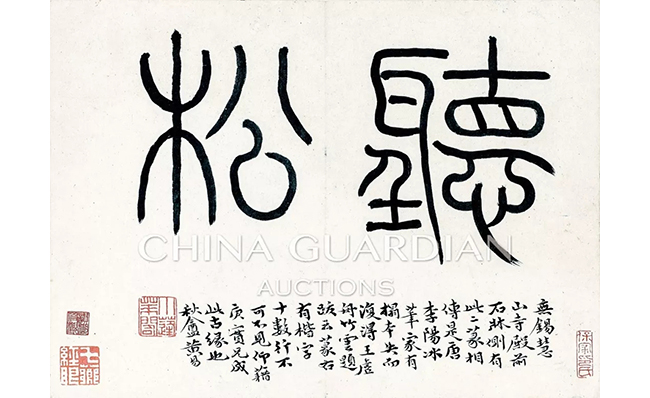 聽松
無錫慧
山寺殿前
石牀側有
此二篆相
傳是唐
李陽冰
筆家有
搨本失而
復得王虛
舟竹雲題
跋云篆右
有楷字
十數行不
可不見仰藉
寶兄成
此古緣也
秋盦黃易
小蓬萊閣
CHINA GUARDIAN
AUCTIONS